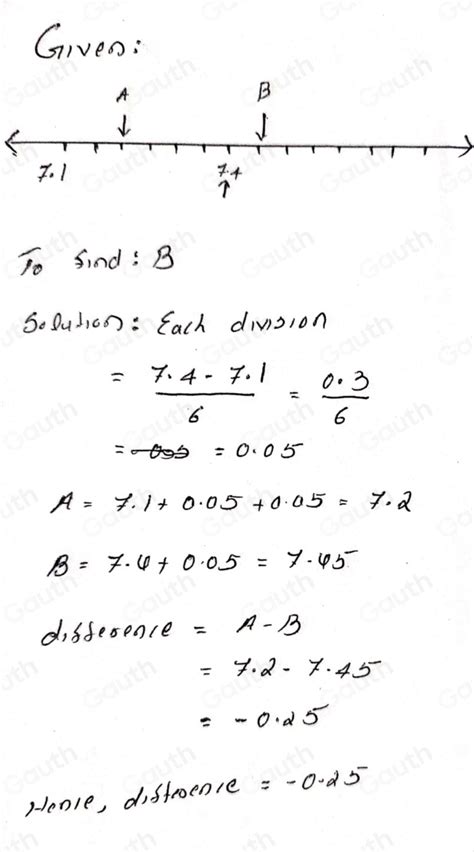 Given:
A B
7.1 7.4
To find: B
Solution: Each division
= 7.4 - 7.1 / 6 = 0.3 / 6
= = 0.05
A = 7.1 + 0.05 + 0.05 = 7.2
B = 7.4 + 0.05 = 7.45
difference = A - B
= 7.2 - 7.45
= -0.25
Hence, difference = -0.25
Gauth